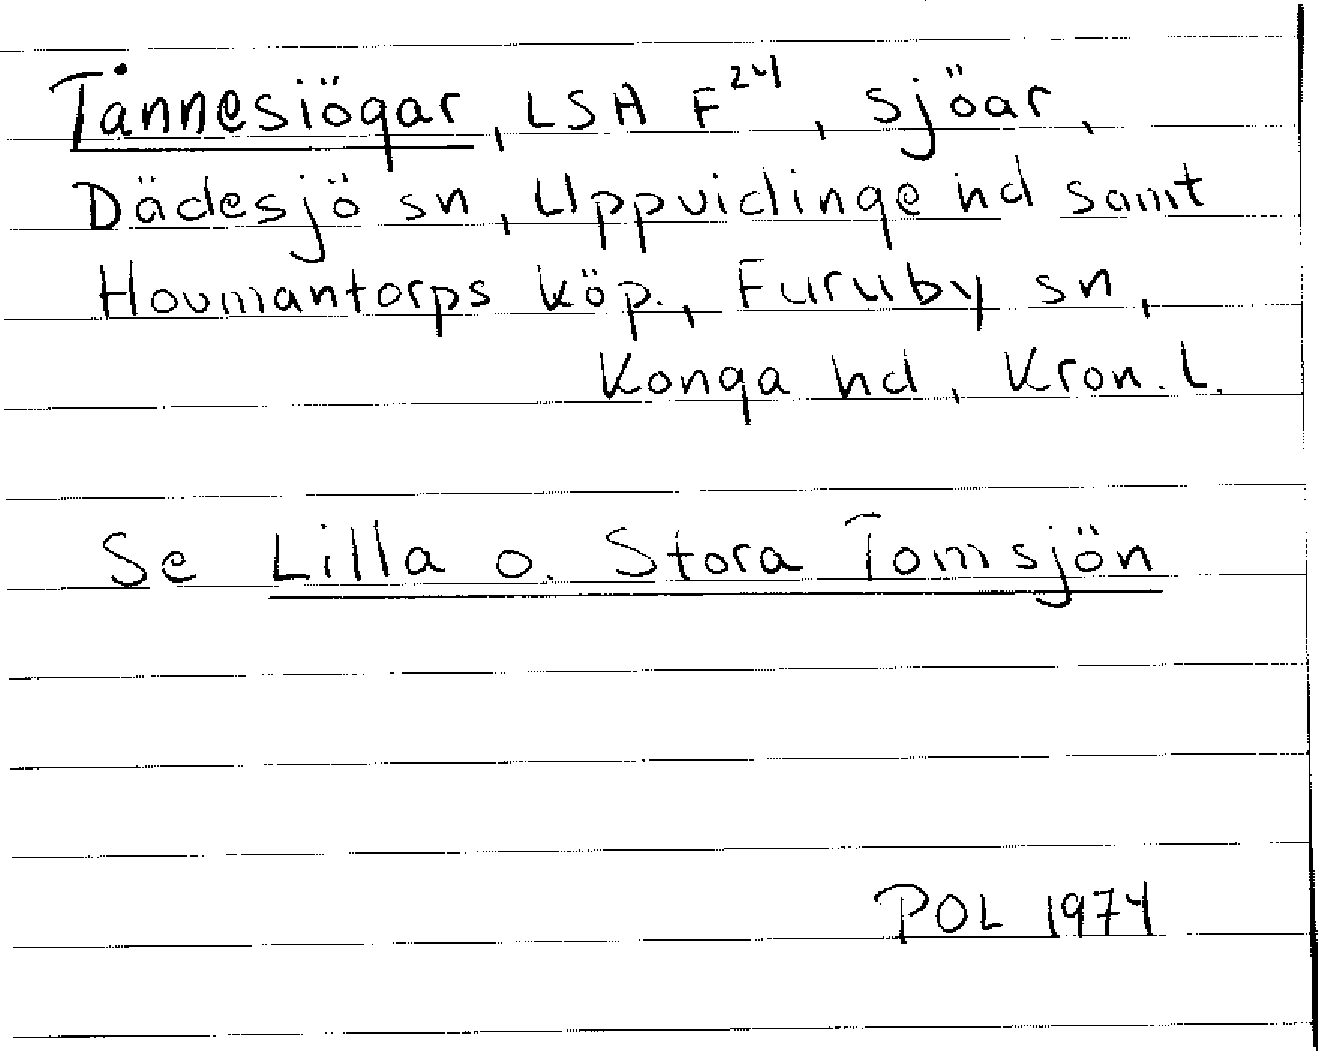 Tånnesiögar, LSH F²⁴, sjöar,
Dädesjö sn, Uppvidinge hd samt
Hovmantorps köp., Furuby sn,
Konga hd, Kron. l.
Se Lilla o. Stora Tomsjön
POL 1974